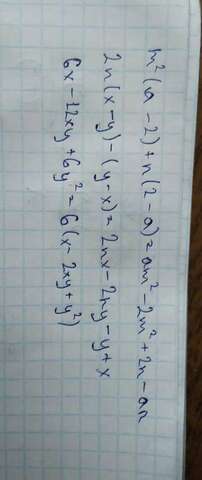 m²(a-2)+n(2-a)=am²-2m²+2n-an
2n(x-y)-(y-x)=2nx-2ny-y+x
6x-12xy+6y²=6(x-2xy+y²)